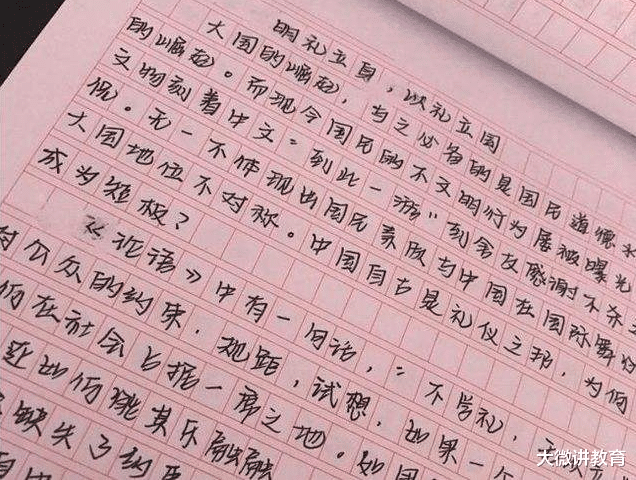 明礼立身，以礼立国
大国的崛起，与之必备的是国民道德
的崛起。而现今国民的不文明行为屡被曝光
文物刻着中文“到此一游”刻舍友感谢不杀
况。无一不体现出国民素质与中国在国际舞
大国地位不对称。中国自古是礼仪之邦，为何
成为短板？
《论语》中有一句话，“不学礼，
对公众的约束，规距，试想，如果一个
何在社会占据一席之地。如
此如何能其乐融融
缺失了约
大微讲教育